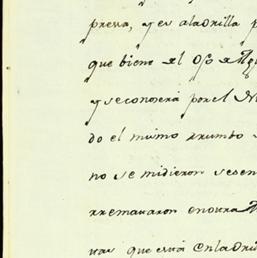 presa, y es a la orilla
que biene el Ojo de
y se conocerá por el
do el mismo rrumbo
no se midieron sesen
rremataron en otra
ras que está en la ori